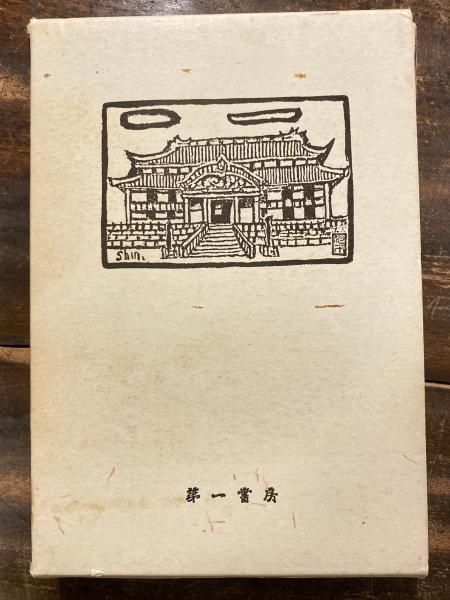 shin.
第一書房